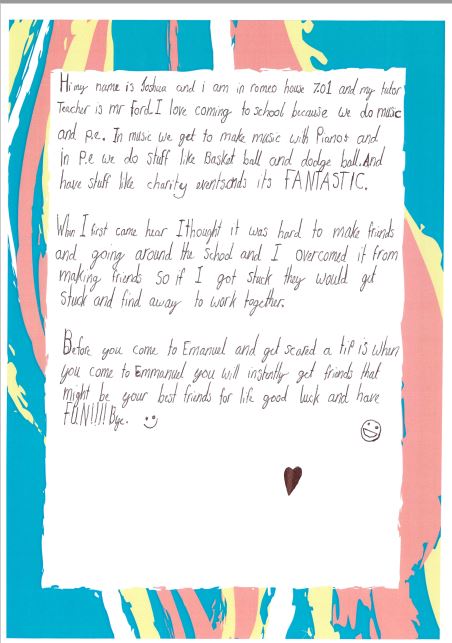 Hi my name is Joshua and i am in romeo house 7o1 and my tutor
Teacher is mr Ford. I love coming to school because we do music
and p.e. In music we get to make music with Pianos and
in P.e we do stuff like Basket ball and dodge ball. And
have stuff like charity events and its FANTASTIC.
When I first came hear I thought it was hard to make friends
and going around the school and I overcomed it from
making friends so if I got stuck they would get
stuck and find away to work together.
Before you come to Emanuel and get scared a tip is when
you come to Emmanuel you will instently get friends that
might be your best friends for life good luck and have
FUN!!!! Bye.